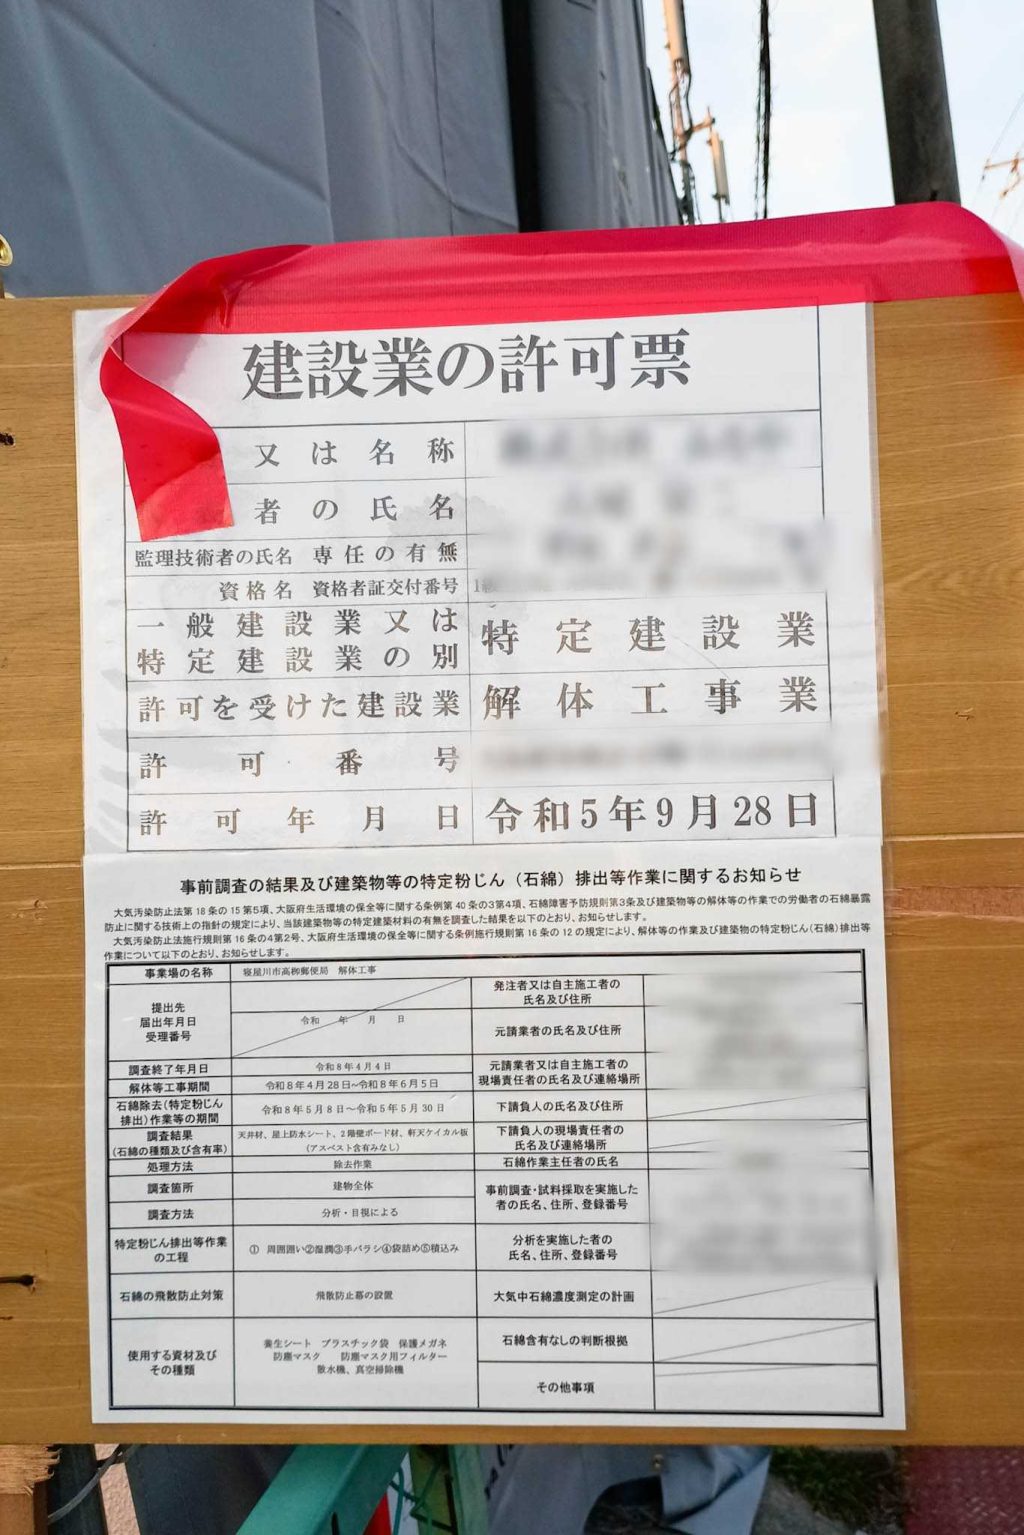 建設業の許可票
又は名称
者の氏名
監理技術者の氏名 専任の有無
資格名 資格者証交付番号 1級
一般建設業又は
特定建設業の別
特定建設業
許可を受けた建設業 解体工事業
許可番号
許可年月日 令和5年9月28日
事前調査の結果及び建築物等の特定粉じん（石綿）排出等作業に関するお知らせ
大気汚染防止法第18条の15第5項、大阪府生活環境の保全等に関する条例第40条の3第4項、石綿障害予防規則第3条及び建築物等の解体等の作業での労働者の石綿暴露
防止に関する技術上の指針の規定により、当該建築物等の特定建築材料の有無を調査した結果を以下のとおり、お知らせします。
大気汚染防止法施行規則第16条の4第2号、大阪府生活環境の保全等に関する条例施行規則第16条の12の規定により、解体等の作業及び建築物の特定粉じん(石綿)排出等
作業について以下のとおり、お知らせします。
事業場の名称 寝屋川市高柳郵便局 解体工事
提出先
届出年月日
受理番号
令和 年 月 日
発注者又は自主施工者の
氏名及び住所
元請業者の氏名及び住所
調査終了年月日 令和8年4月4日
解体等工事期間 令和8年4月28日~令和8年6月5日
元請業者又は自主施工者の
現場責任者の氏名及び連絡場所
石綿除去(特定粉じん
排出)作業等の期間
令和8年5月8日~令和5年5月30日
下請負人の氏名及び住所
調査結果
(石綿の種類及び含有率)
天井材、屋上防水シート、2階壁ボード材、軒天ケイカル板
(アスベスト含有みなし)
下請負人の現場責任者の
氏名及び連絡場所
処理方法 除去作業
石綿作業主任者の氏名
調査箇所 建物全体
調査方法 分析・目視による
事前調査・試料採取を実施した
者の氏名、住所、登録番号
特定粉じん排出等作業
の工程
① 周囲囲い②湿潤③手バラシ④袋詰め⑤積込み
分析を実施した者の
氏名、住所、登録番号
石綿の飛散防止対策 飛散防止幕の設置
大気中石綿濃度測定の計画
使用する資材及び
その種類
養生シート プラスチック袋 保護メガネ
防塵マスク 防塵マスク用フィルター
散水機、真空掃除機
石綿含有なしの判断根拠
その他事項